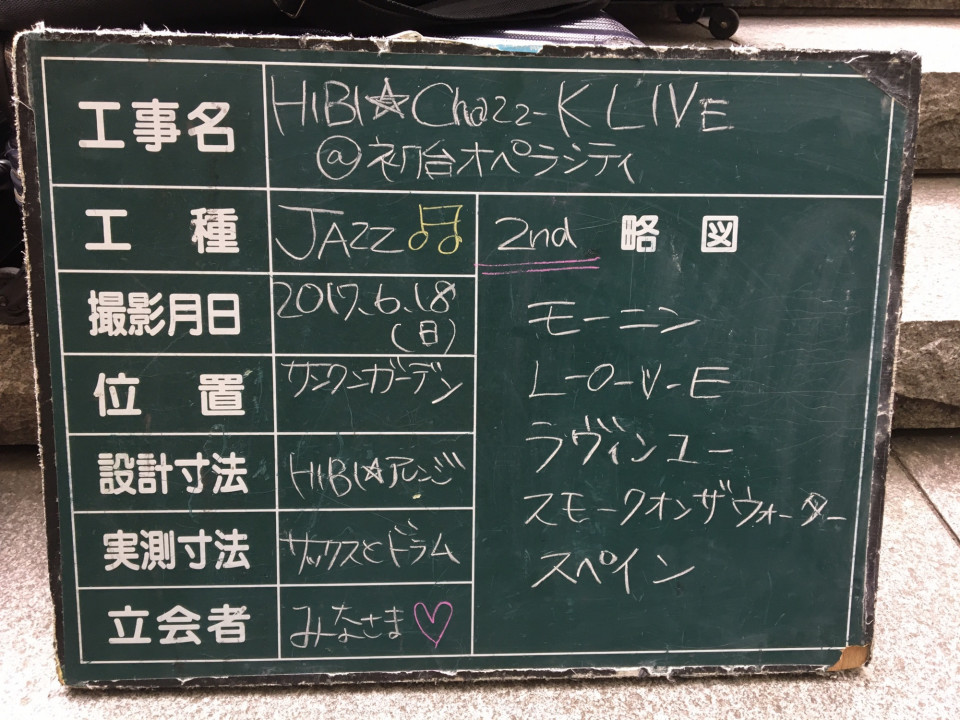 工事名
HIBI☆Chazz-K LIVE
@初台オペラシティ
工種
JAZZ♫
撮影月日
2017.6.18
(日)
位置
サンクンガーデン
設計寸法
HIBI☆アレンジ
実測寸法
サックスとドラム
立会者
みなさま♡
2nd 略図
モーニン
L-O-V-E
ラヴィンユー
スモークオンザウォーター
スペイン